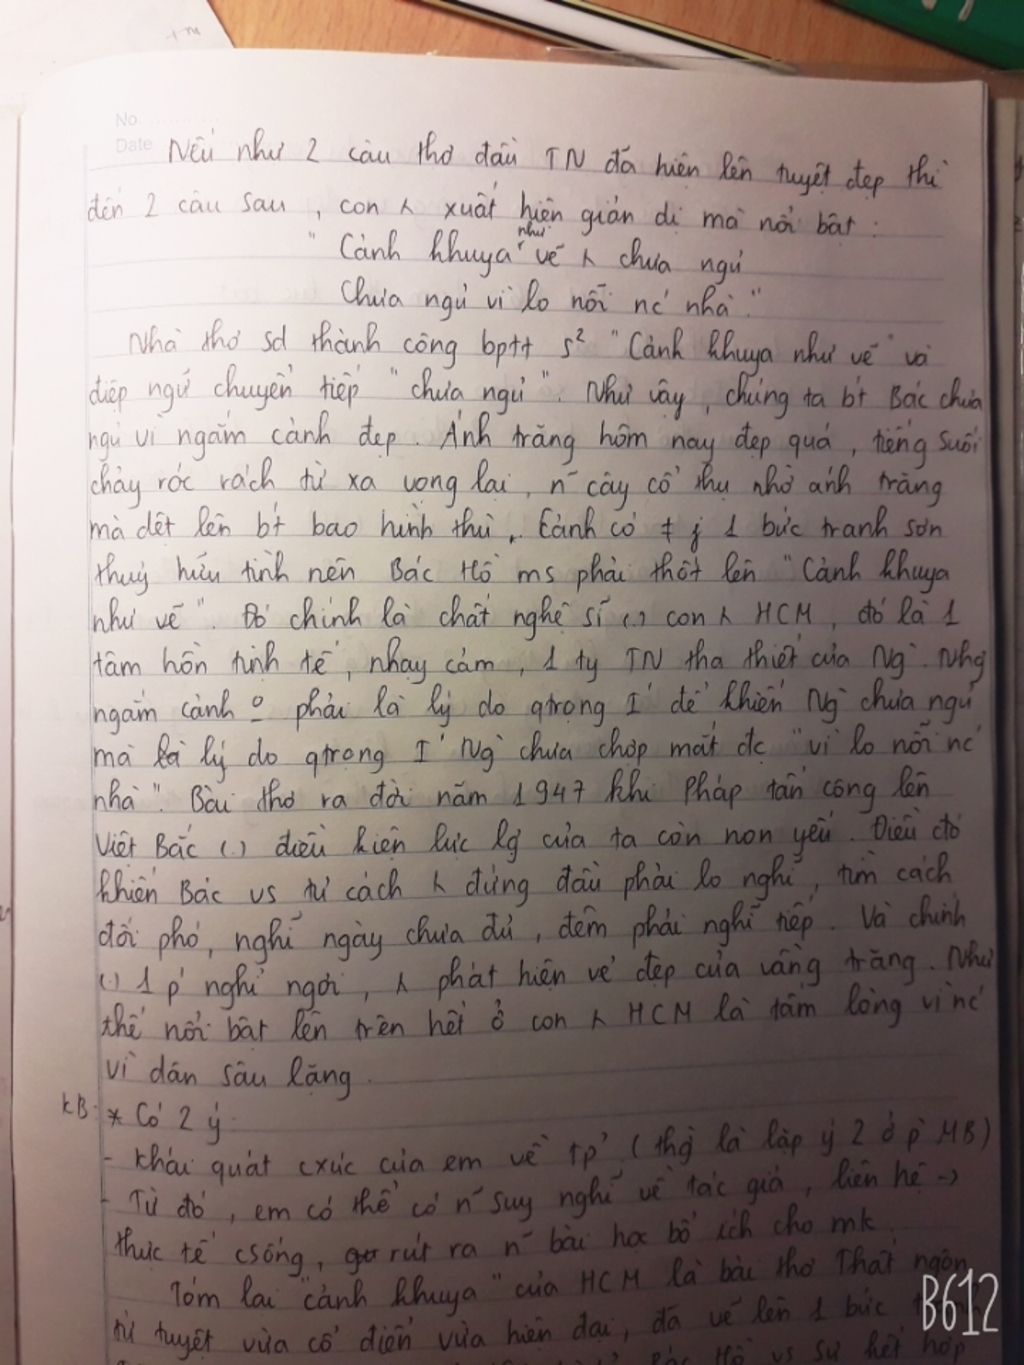 No.
Date
Nếu như 2 câu thơ đầu TN đã hiện lên tuyệt đẹp thì
đến 2 câu sau, con λ xuất hiện giản dị mà nổi bật:
"Cảnh khuya như vẽ λ chưa ngủ
Chưa ngủ vì lo nỗi nc' nhà."
Nhà thơ sd thành công bptt s² "Cảnh khuya như vẽ" và
điệp ngữ chuyển tiếp "chưa ngủ". Như vậy, chúng ta bt Bác chưa
ngủ vì ngắm cảnh đẹp. Ánh trăng hôm nay đẹp quá, tiếng suối
chảy róc rách từ xa vọng lại, n~ cây cổ thụ nhờ ánh trăng
mà dệt lên bt bao hình thù. Cảnh có ≠ j 1 bức tranh sơn
thuỷ hữu tình nên Bác Hồ ms phải thốt lên "Cảnh khuya
như vẽ". Đó chính là chất nghệ sĩ (.) con λ HCM, đó là 1
tâm hồn tinh tế, nhạy cảm, 1 ty TN tha thiết của Ng`. Nhg
ngắm cảnh o phải là lý do qtrọng I' để khiến Ng` chưa ngủ
mà là lý do qtrọng I' Ng` chưa chợp mắt đc "vì lo nỗi nc'
nhà". Bài thơ ra đời năm 1947 khi Pháp tấn công lên
Việt Bắc (.) điều kiện lực lg của ta còn non yếu. Điều đó
khiến Bác vs tư cách λ đứng đầu phải lo nghĩ, tìm cách
đối phó, nghĩ ngày chưa đủ, đêm phải nghĩ tiếp. Và chính
(.) 1 p' nghỉ ngơi, λ phát hiện vẻ đẹp của vầng trăng. Như
thế nổi bật lên trên hết ở con λ HCM là tấm lòng vì nc'
vì dân sâu lặng.
KB: * Có 2 ý
- Khái quát cxúc của em về tp' (thg là lặp ý 2 ở p` MB)
- Từ đó, em có thể có n~ suy nghĩ về tác giả, liên hệ ->
thực tế csống, rút ra n~ bài học bổ ích cho mk.
Tóm lại "cảnh khuya" của HCM là bài thơ Thất ngôn
tứ tuyệt vừa cổ điển vừa hiện đại, đã vẽ lên 1 bức
Bác Hồ vs sự kết hợp
B612